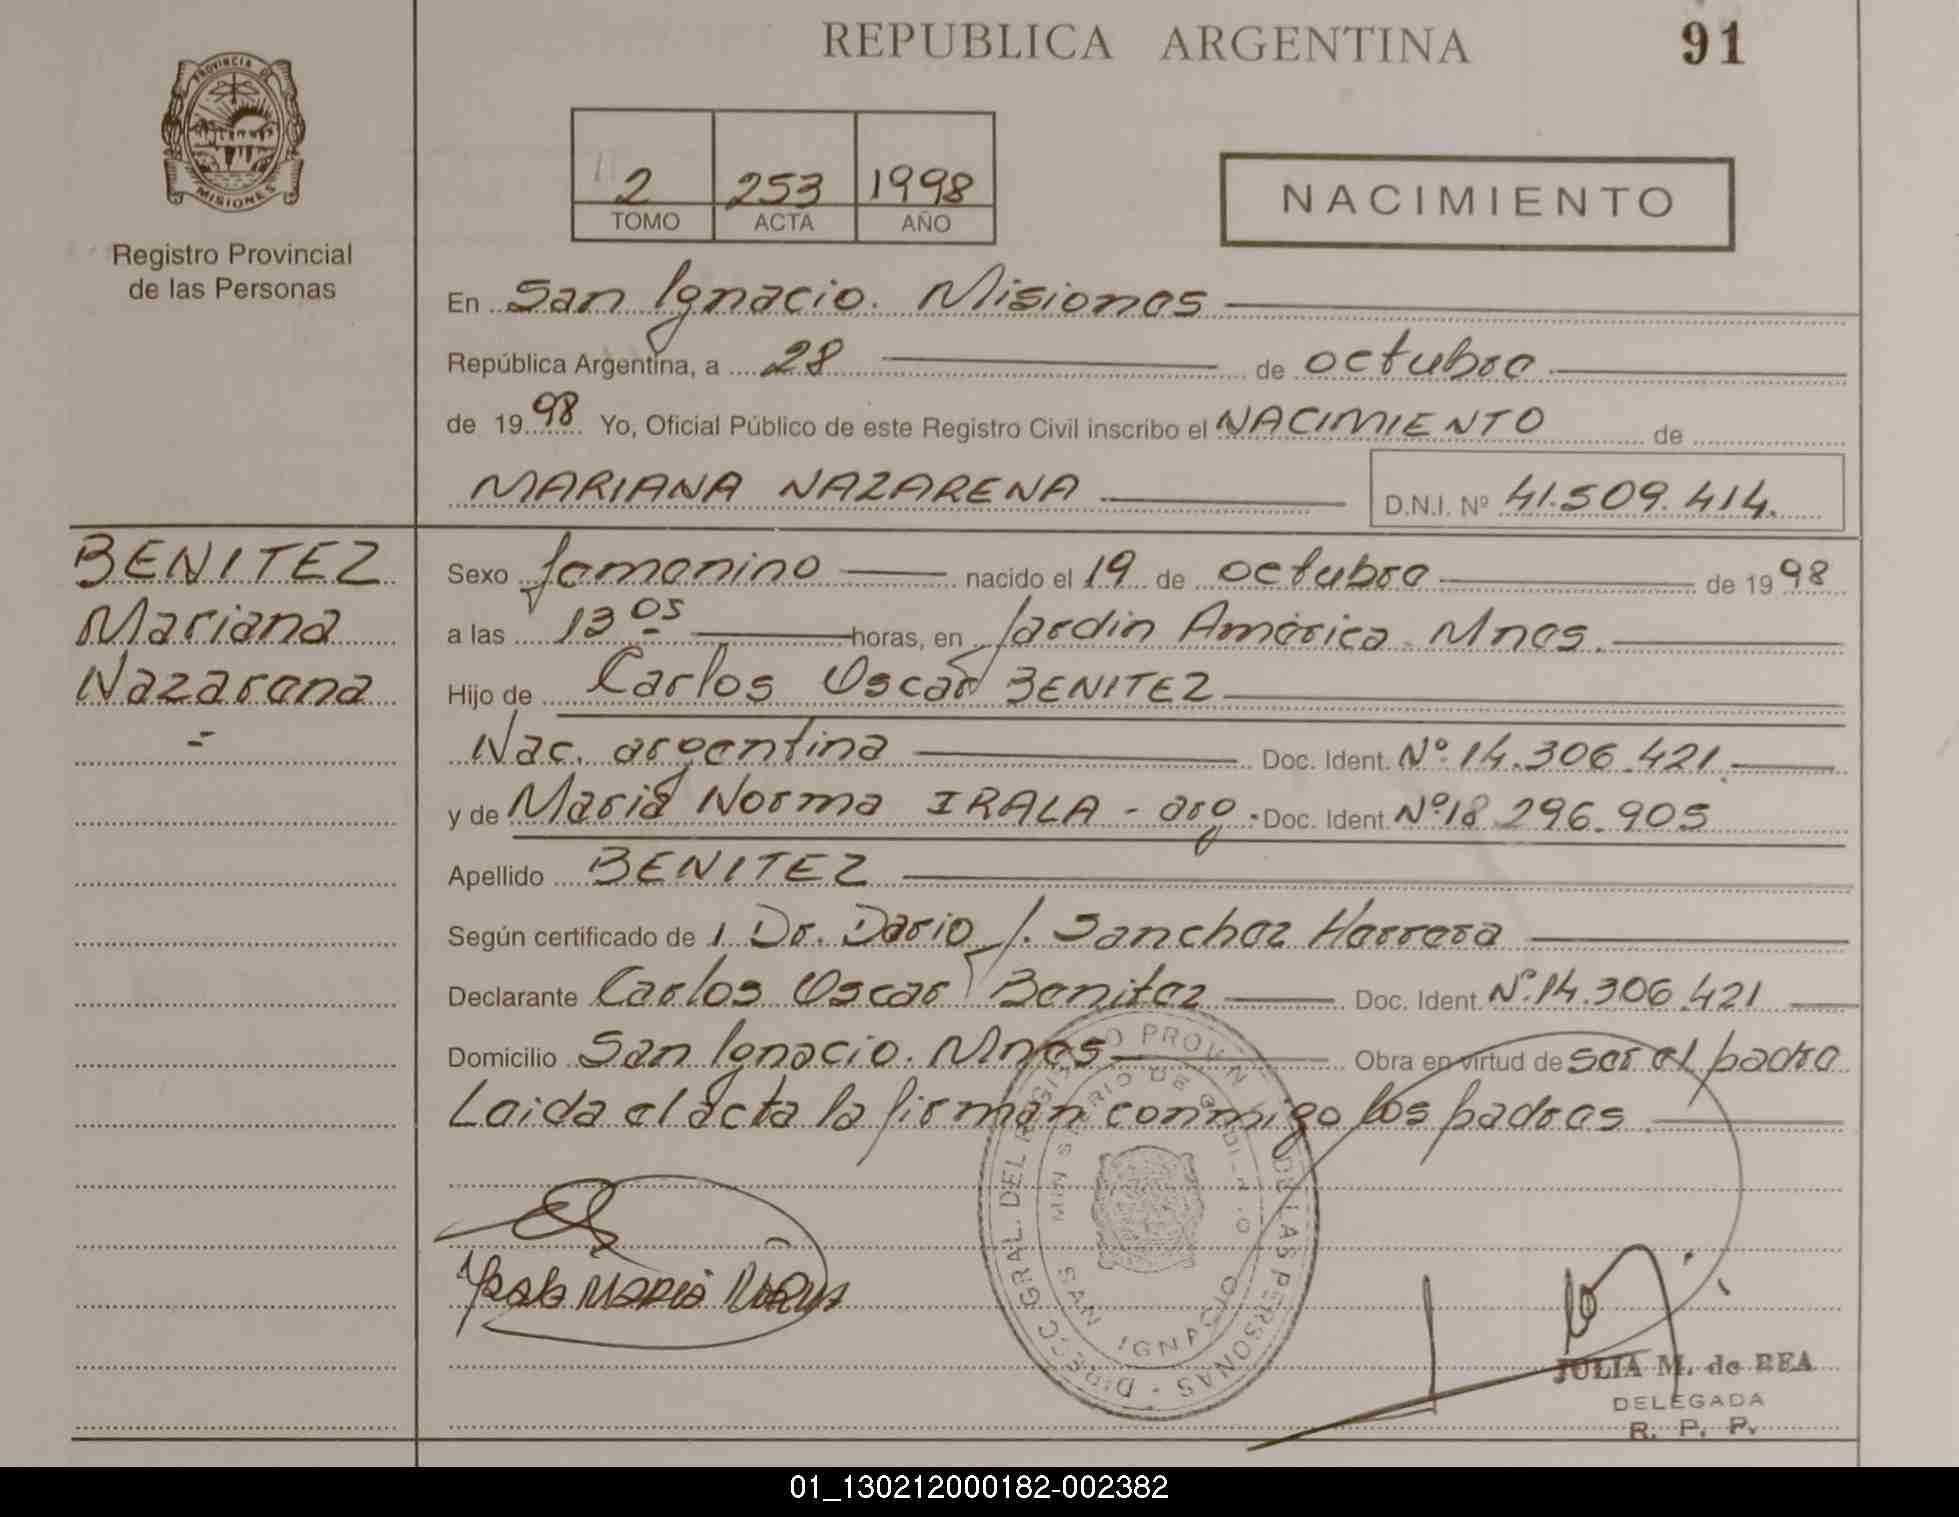 REPUBLICA ARGENTINA 91
PROVINCIA DE
MISIONES
Registro Provincial
de las Personas
2 253 1998
TOMO ACTA AÑO
NACIMIENTO
En San Ignacio. Misiones
República Argentina, a 28 de octubre
de 1998 Yo, Oficial Público de este Registro Civil inscribo el NACIMIENTO de
MARIANA NAZARENA D.N.I. Nº 41.509.414.
BENITEZ
Mariana
Nazarena
Sexo femenino nacido el 19 de octubre de 1998
a las 13 05 horas, en Jardin América. Mnes.
Hijo de Carlos Oscar BENITEZ
Nac. argentina Doc. Ident. Nº 14.306.421.
y de Maria Norma IRALA - arg. Doc. Ident. Nº 18 296.905
Apellido BENITEZ
Según certificado de Dr. Dario J. Sanchez Herrera
Declarante Carlos Oscar Benitez Doc. Ident. Nº 14.306.421
Domicilio San Ignacio. Mnes Obra en virtud de ser el padre
Leida el acta la firman conmigo los padres
DIREC. GRAL. DEL REGISTRO PROVIN DE LAS PERSONAS
MINISTERIO DE GOBIERNO
SAN IGNACIO
Maria Norma
JULIA M. de REA
DELEGADA
R. P. P.
01_130212000182-002382